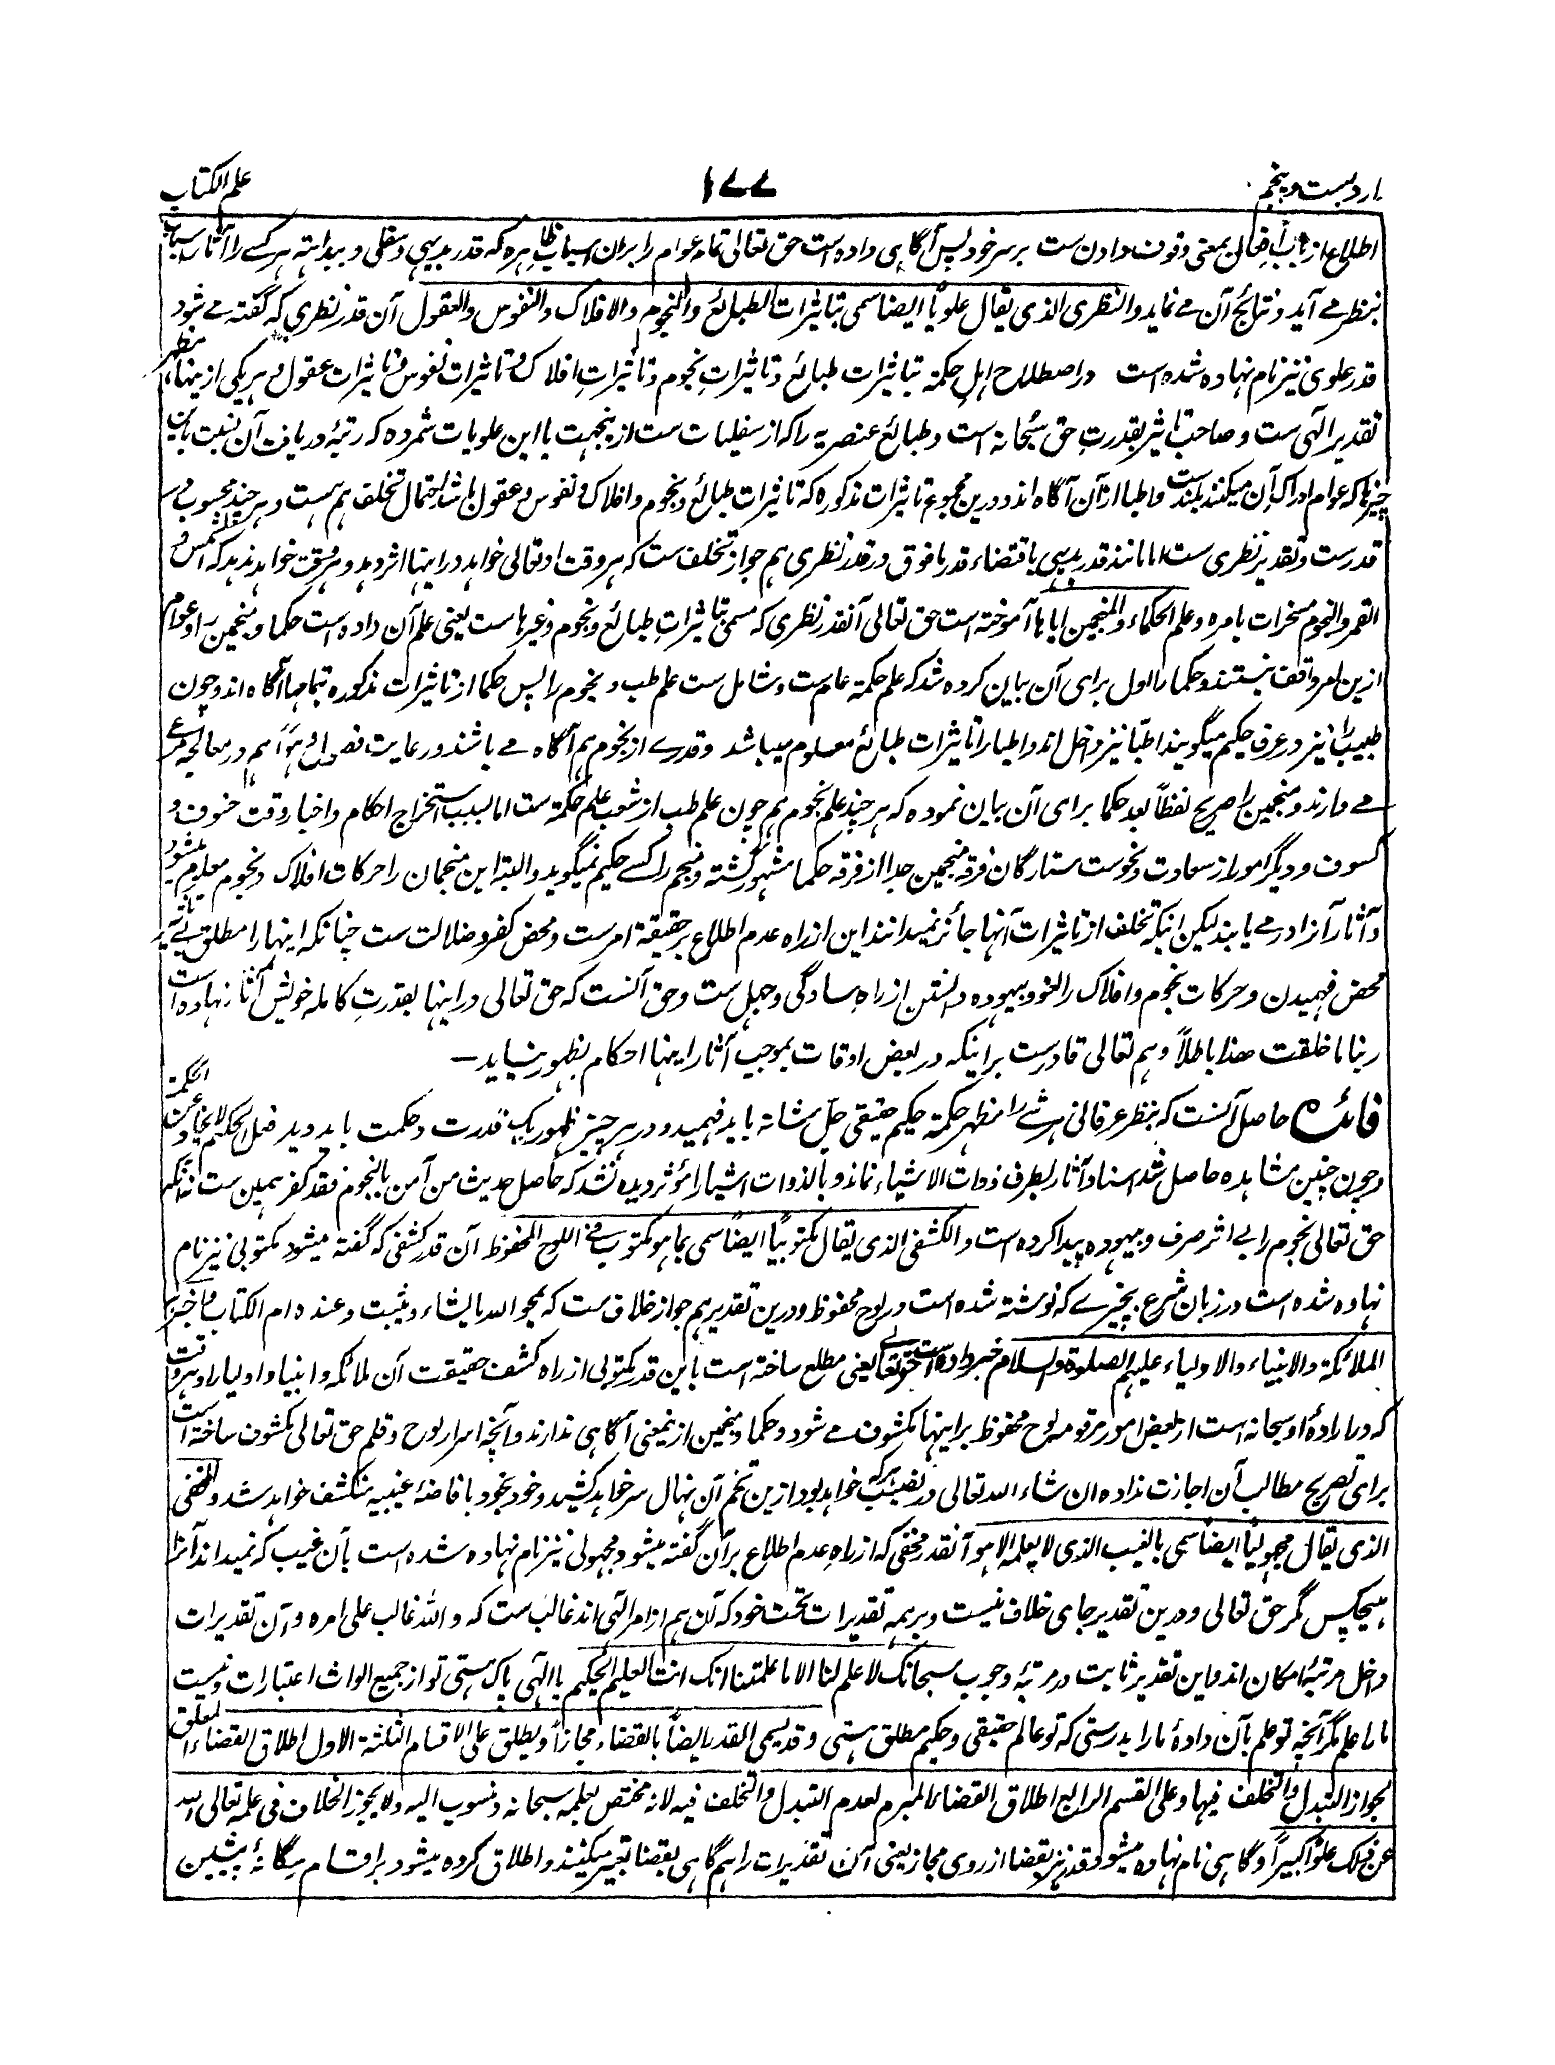 وارد بست و پنجم ۱۷۷ علم الکتاب
اطلاع از باب افعال بمعنی وقوف دادن ست بر سر خود پس آگاهی داده است حق تعالی تمام عوام را بران اسباب ظاهره که قدر بدیهی و سفلی و ببداهته هر کسے را آثار اسباب
بنظر مے آید و نتائج آن مے نماید والنظری الذی یقال علویًا ایضا سمی بتاثیرات الطبائع والنجوم والافلاک والنفوس والعقول آن قدر نظری که گفته مے شود
قدر علوی نیز نام نهاده شده است در اصطلاح اهلِ حکمة بتاثیرات طبائع و تاثیراتِ نجوم و تاثیراتِ افلاک و تاثیرات نفوس و تاثیرات عقول و هر یکی ازینها مظهر
تقدیر الٰهی ست و صاحب تاثیر بقدرتِ حق سبحانه است و طبائع عنصریه را که از سفلیات ست ازینجهت با این علویات شمرده که رتبهٔ دریافت آن نسبت بآن
چیزها که عوام ادراک آن میکنند بلندست و اطبا ازان آگاه اند و درین مجموع تاثیرات مذکوره که تاثیرات طبائع و نجوم و افلاک و نفوس و عقول باشد احتمال تخلف هم هست و هر چند محسوب در
قدرست و تقدیر نظری ست اما مانند قدر بدیهی باقتضاء قدر مافوق در قدر نظری هم جواز تخلف ست که هر وقت او تعالی خواهد در اینها اثر دهد و هر وقت خواهد ندهد که الشمس و
القمر والنجوم مسخرات بامره و علم الحکماء والمنجمین ایاها آموخته است حق تعالی آنقدر نظری که مسمی بتاثیراتِ طبائع و نجوم و غیرها ست یعنی علم آن داده است حکما و منجمین را و عوام
ازین امر واقف نیستند و حکما را اول برای آن بیان کرده شد که علم حکمة عام ست و شامل ست علم طب و نجوم را پس حکما از تاثیرات مذکوره بتمامها آگاه اند و چون
طبیب را نیز در عرف حکیم میگویند اطبّا نیز داخل اند و اطبا را تاثیرات طبائع معلوم میباشد و قدرے از نجوم هم آگاه مے باشند و رعایت فصول و هوا هم در معالجه مرعے
مے دارند و منجمین را صریح لفظاً بعد حکما برای آن بیان نموده که هر چند علم نجوم هم چون علم طب از شعب علم حکمة ست اما بسبب استخراج احکام و اخبار وقت خسوف و
کسوف و دیگر امور از سعادت و نحوست ستارگان فرقه منجمین جدا از فرقه حکما مشهور گشته و منجم را کسے حکیم نمیگوید و البته این منجمان را حرکات افلاک و نجوم معلوم میشود
و آثار آنرا در مے یابند لیکن اینکه تخلف از تاثیرات آنها جائز نمیدانند این از راه عدم اطلاع بر حقیقة امرست و محض کفر و ضلالت ست چنانکه اینها را مطلق بے تاثیر
محض فهمیدن و حرکات نجوم و افلاک را لغو و بیهوده دانستن از راهِ سادگی و جهل ست و حق آنست که حق تعالی در اینها بقدرتِ کامله خویش آثار نهاده است
ربنا ما خلقت هذا باطلاً و هم تعالی قادرست بر اینکه در بعض اوقات بموجب آثار اینها احکام بظهور نیاید —
فائده حاصل آنست که بنظر عرفانی هر شے را مظهر حکمة حکیم حقیقی جل شانه باید فهمید و در هر چیز ظهور یک قدرت و حکمت باید دید فعل الحکیم لا یخلو عن الحکمة
و چون چنین مشاهده حاصل شد اسناد آثار بطرف ذوات الاشیاء نماند و بالذات اشیا را مؤثر دیده نشد که حاصل حدیث من آمن بالنجوم فقد کفر همین ست نه آنکه
حق تعالی نجوم را بے اثر صرف و بیهوده پیدا کرده است والکشفی الذی یقال مکتوبیًا ایضاً سمی بما هو مکتوب فی اللوح المحفوظ آن قدر کشفی که گفته میشود مکتوبی نیز نام
نهاده شده است در زبان شرع بچیزے که نوشته شده است در لوح محفوظ و درین تقدیر هم جواز خلاف ست که یمحو الله ما یشاء و یثبت و عنده ام الکتاب و اخبر
الملائکة والانبیاء والاولیاء علیهم الصلوة والسلام خبر داده است حق تعالی یعنی مطلع ساخته است باین قدر مکتوبی از راه کشف حقیقت آن ملائکه و انبیا و اولیا را و هر وقت
که در ارادهٔ او سبحانه است از بعض امور مرقومه لوح محفوظ بر اینها مکشوف مے شود و حکما و منجمین ازینمعنی آگاهی ندارند و آنچه اسرار لوح و قلم حق تعالی مکشوف ساخته است
برای تصریح مطالب آن اجازت نداده ان شاء الله تعالی در نصیب هرکه خواهد بود ازین تخم آن نهال سر خواهد کشید و خود بخود بافاضهٔ غیبیه منکشف خواهد شد والمخفی
الذی یقال مجهولیًا ایضاً سمی بالغیب الذی لا یعلمه الا هو آنقدر مخفی که از راه عدم اطلاع بر آن گفته میشود مجهولی نیز نام نهاده شده است بآن غیب که نمیداند آنرا
هیچکس مگر حق تعالی و درین تقدیر جای خلاف نیست و بر همه تقدیرات تحت خود که آن هم از امر الٰهی اند غالب ست که والله غالب علی امره و آن تقدیرات
داخل مرتبهٔ امکان اند و این تقدیر ثابت در مرتبهٔ وجوب سبحانک لا علم لنا الا ما علمتنا انک انت العلیم الحکیم یا الٰهی پاک هستی تو از جمیع الواث اعتبارات و نیست
ما را علم مگر آنچه تو علم بآن دادهٔ ما را بدرستی که تو عالم حقیقی و حکیم مطلق هستی و قد یسمی القدر ایضاً بالقضاء مجازاً و یطلق علی الاقسام الثلثة الاول اطلاق القضاء المعلق
لجواز التبدل والتخلف فیها و علی القسم الرابع اطلاق القضاء المبرم لعدم التبدل والتخلف فیه لانه مختص بعلمه سبحانه و منسوب الیه ولا یجوز الخلاف فی علمه تعالی الله
عن ذلک علوًّا کبیراً و گاهی نام نهاده میشود قدر نیز بقضا از روی مجاز یعنی آن تقدیرات را هم گاهی بقضا تعبیر میکنند و اطلاق کرده میشود بر اقسام سگانهٔ پیشین